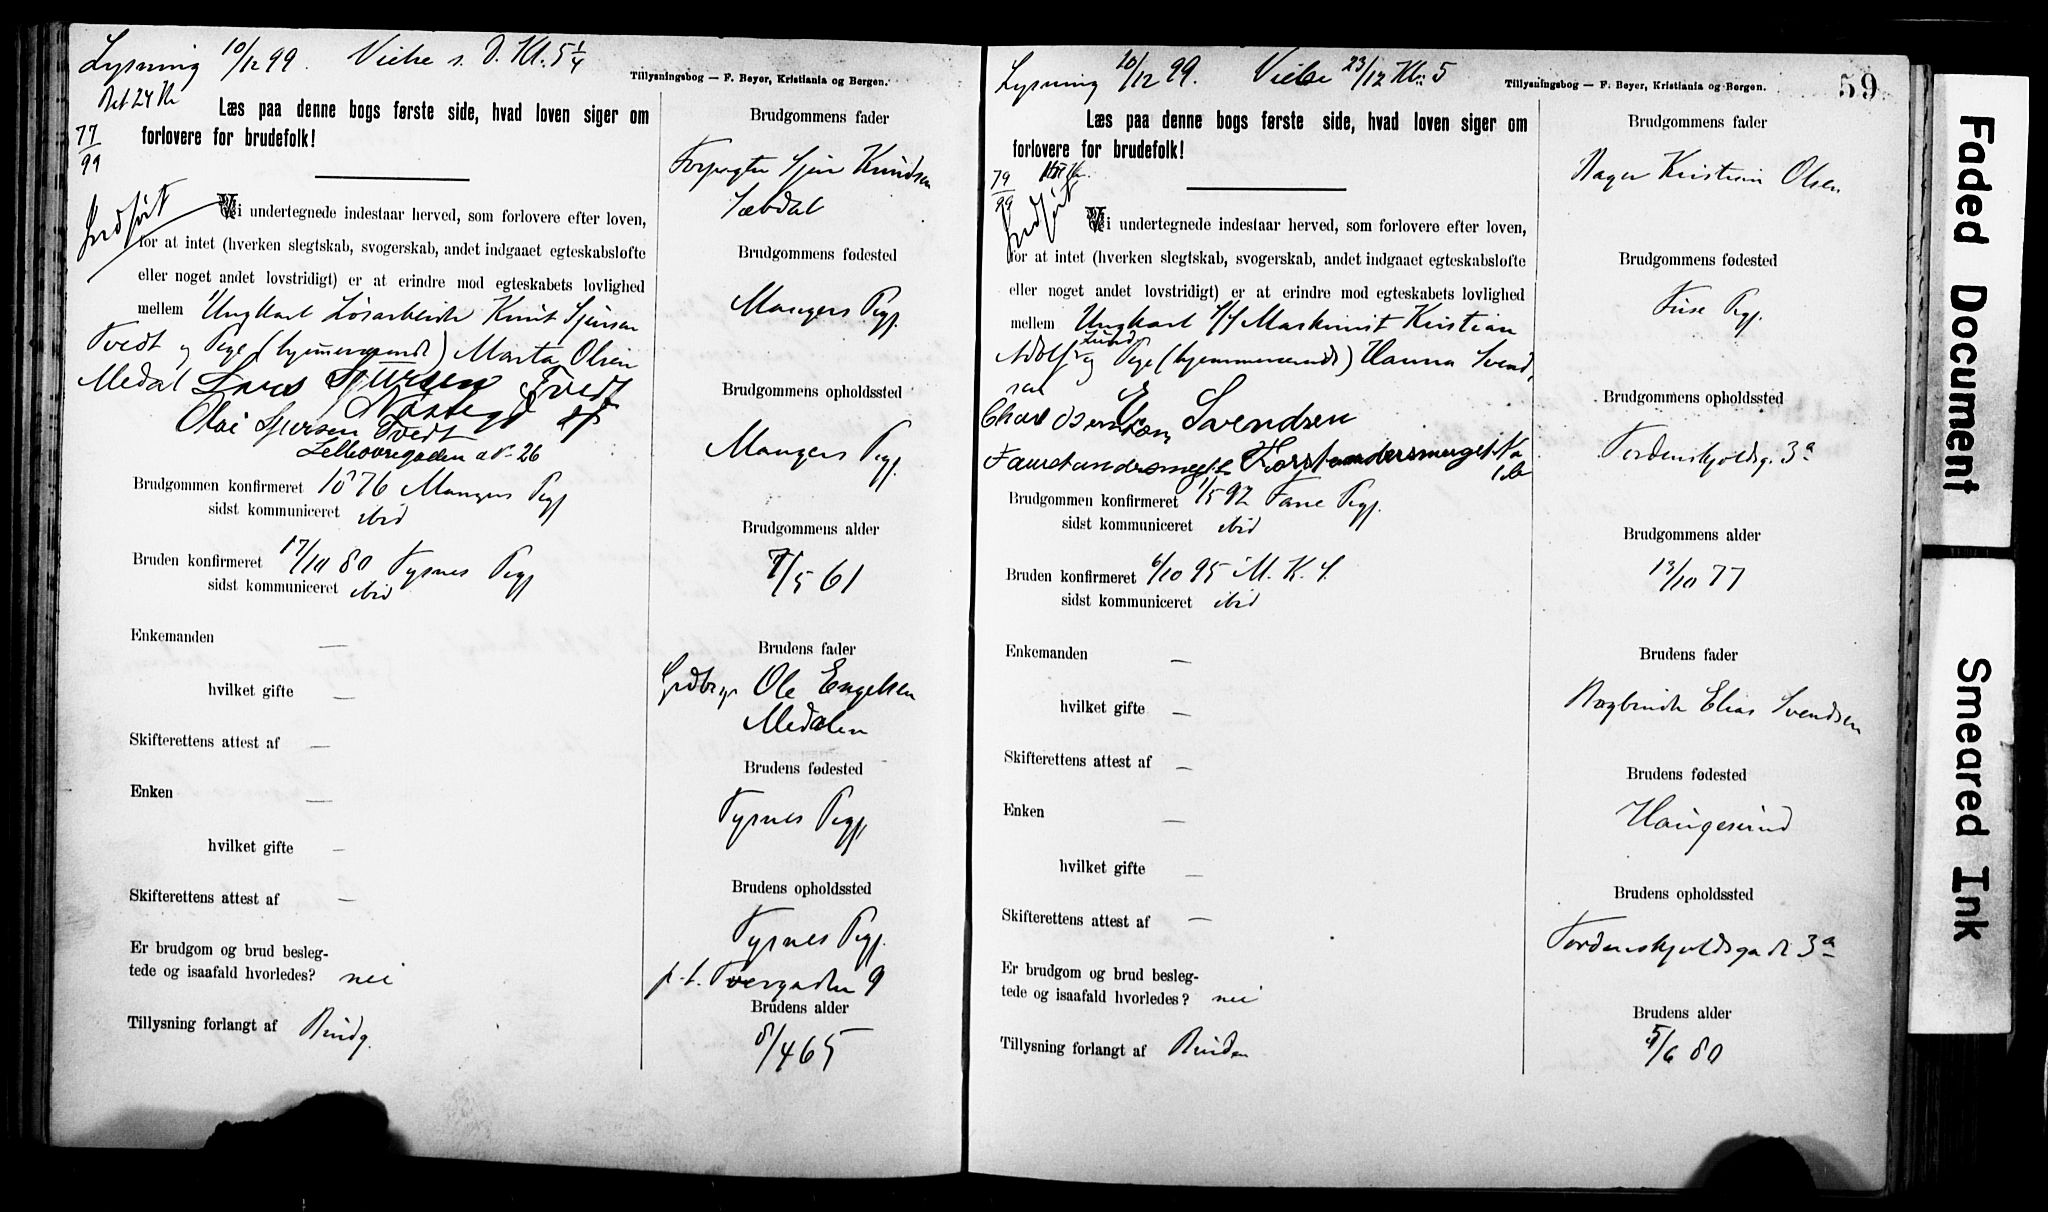 Lysning 10/12 99. Vielse s. D. Kl. 5 1/4
Tillysningsbog — F. Beyer, Kristiania og Bergen.
Bet 24 Kr
77/99
Indført
Læs paa denne bogs første side, hvad loven siger om
forlovere for brudefolk!
Vi undertegnede indestaar herved, som forlovere efter loven,
for at intet (hverken slegtskab, svogerskab, andet indgaaet egteskabsløfte
eller noget andet lovstridigt) er at erindre mod egteskabets lovlighed
mellem Ungkarl Løsarbeider Knut Sjursen
Tvedt og Pige (hjemmeværende) Marta Olsen
Medal Lars Sjursen Tvedt
Nøstegd
Olai Sjursen Tvedt
No 26
Brudgommen konfirmeret 1076 Mangers Pgj
sidst kommuniceret ibid
Bruden konfirmeret 17/10 80 Tysnes Pgj
sidst kommuniceret ibid
Enkemanden —
hvilket gifte —
Skifterettens attest af —
Enken —
hvilket gifte —
Skifterettens attest af —
Er brudgom og brud beslegtede
og isaafald hvorledes? nei
Tillysning forlangt af Brudg.
Brudgommens fader
Forpagter Sjur Knudsen
Sæbdal
Brudgommens fødested
Mangers Pgj.
Brudgommens opholdssted
Mangers Pgj.
Brudgommens alder
7/5 61
Brudens fader
Grdbr. Ole Engelsen
Medalen
Brudens fødested
Tysnes Pgj.
Brudens opholdssted
Tysnes Pgj.
p.t. Tvergaden 9
Brudens alder
8/4 65
Lysning 10/12 99. Vielse 23/12 Kl. 5
Tillysningsbog — F. Beyer, Kristiania og Bergen.
59
79/99
Indført
Læs paa denne bogs første side, hvad loven siger om
forlovere for brudefolk!
Vi undertegnede indestaar herved, som forlovere efter loven,
for at intet (hverken slegtskab, svogerskab, andet indgaaet egteskabsløfte
eller noget andet lovstridigt) er at erindre mod egteskabets lovlighed
mellem Ungkarl Maskinist Kristian
Adolf Lund og Pige (hjemmeværende) Hanna Svendsen
E. Svendsen
Forstandersmuget No
Brudgommen konfirmeret 1/5 92 Fane Pgj.
sidst kommuniceret ibid
Bruden konfirmeret 6/10 95 M. K. S.
sidst kommuniceret ibid
Enkemanden —
hvilket gifte —
Skifterettens attest af —
Enken —
hvilket gifte —
Skifterettens attest af —
Er brudgom og brud beslegtede
og isaafald hvorledes? nei
Tillysning forlangt af Bruden
Brudgommens fader
Bager Kristian Olsen
Brudgommens fødested
Fuse Pgj.
Brudgommens opholdssted
Tordenskjoldsg. 3a
Brudgommens alder
13/10 77
Brudens fader
Bogbinder Elias Svendsen
Brudens fødested
Haugesund
Brudens opholdssted
Tordenskjoldsgade 3a
Brudens alder
5/6 80
Faded Document
Smeared Ink